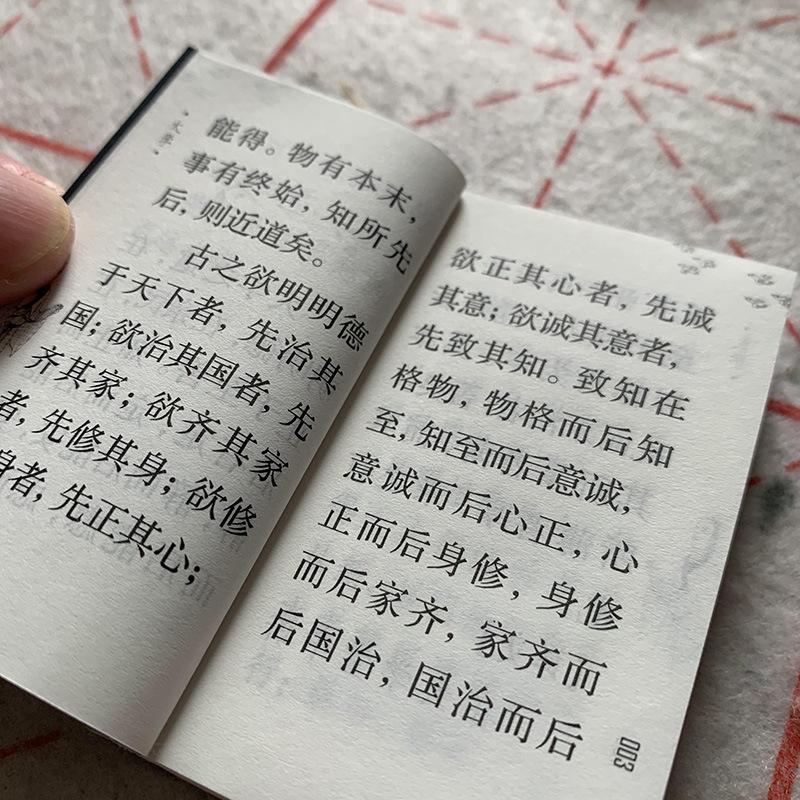 ·大学·
能得。物有本末，
事有终始，知所先
后，则近道矣。
古之欲明明德
于天下者，先治其
国；欲治其国者，先
齐其家；欲齐其家
者，先修其身；欲修
身者，先正其心；
欲正其心者，先诚
其意；欲诚其意者，
先致其知。致知在
格物，物格而后知
至，知至而后意诚，
意诚而后心正，心
正而后身修，身修
而后家齐，家齐而
后国治，国治而后
003